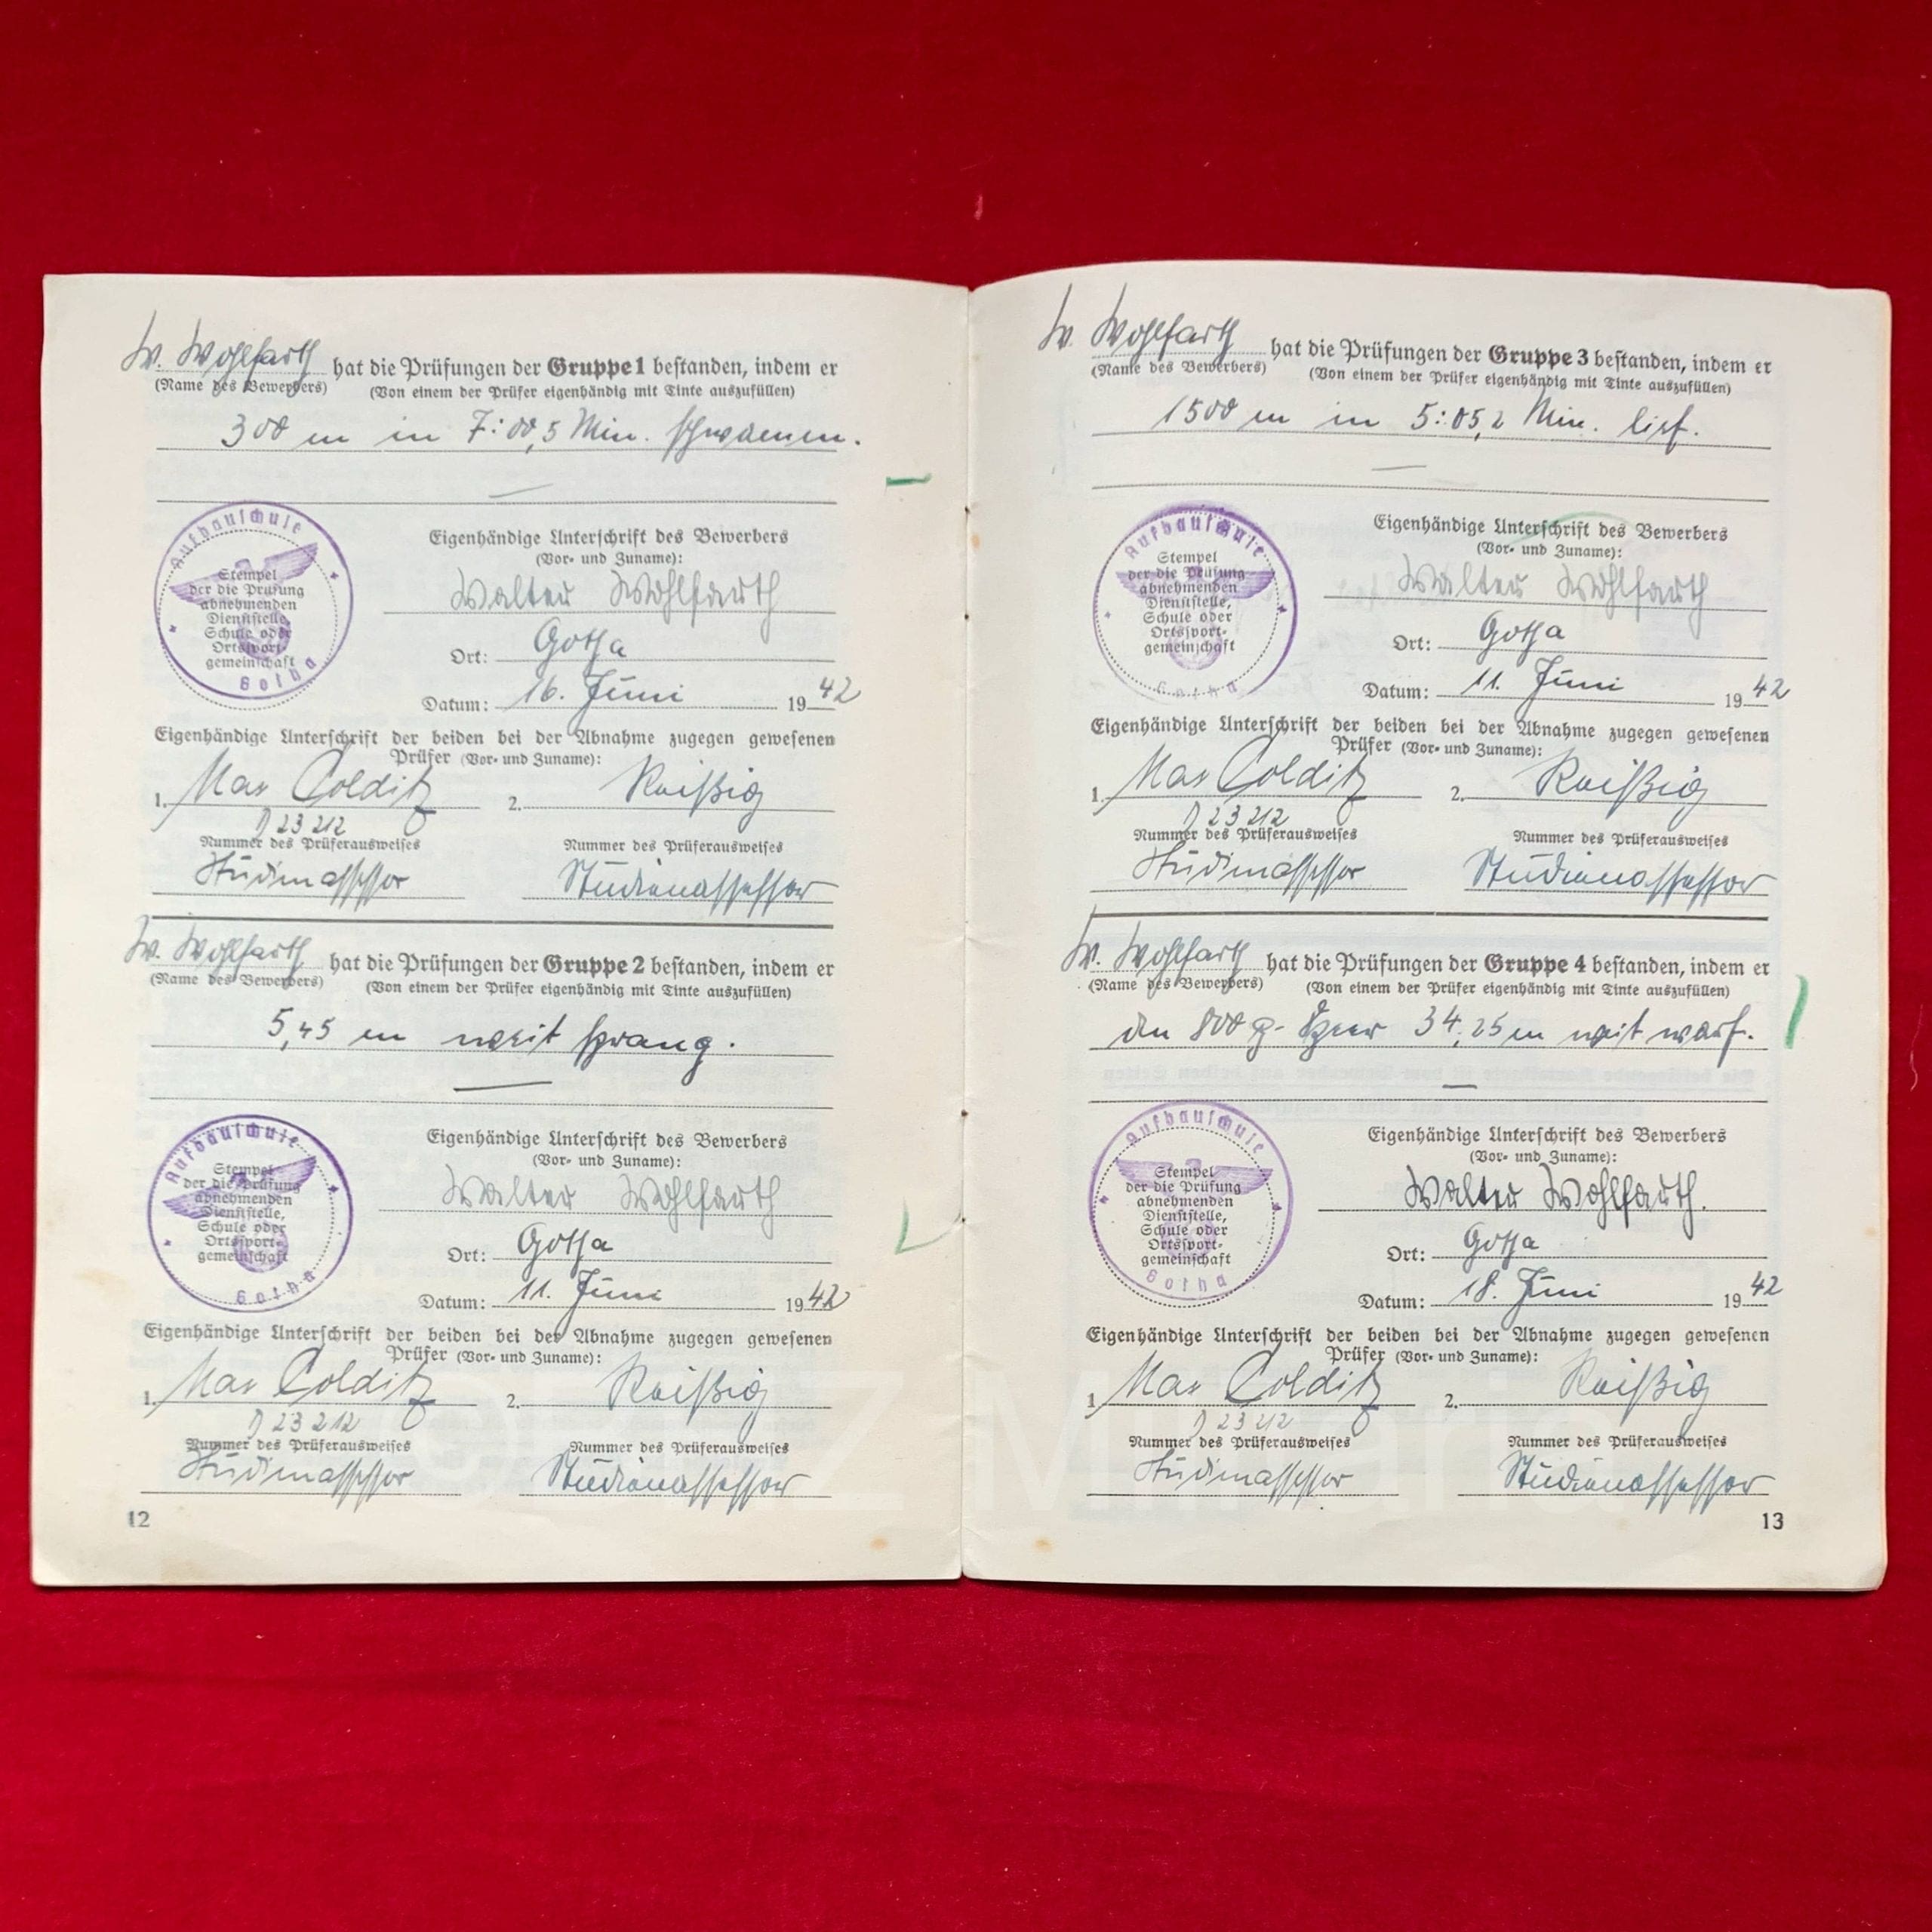 W. Wohlfarth hat die Prüfungen der Gruppe 1 bestanden, indem er
(Name des Bewerbers) (Von einem der Prüfer eigenhändig mit Tinte auszufüllen)
300 m in 7:00,5 Min. schwamm.
Aufbauschule
Gotha
Stempel
der die Prüfung
abnehmenden
Dienststelle,
Schule oder
Ortssport-
gemeinschaft
Eigenhändige Unterschrift des Bewerbers
(Vor- und Zuname):
Walter Wohlfarth
Ort: Gotha
Datum: 16. Juni 1942
Eigenhändige Unterschrift der beiden bei der Abnahme zugegen gewesenen
Prüfer (Vor- und Zuname):
1. Max Colditz 2. Reißig
23 212
Nummer des Prüferausweises Nummer des Prüferausweises
Studienassessor Studienassessor
W. Wohlfarth hat die Prüfungen der Gruppe 2 bestanden, indem er
(Name des Bewerbers) (Von einem der Prüfer eigenhändig mit Tinte auszufüllen)
5,45 m weit sprang.
Aufbauschule
Gotha
Stempel
der die Prüfung
abnehmenden
Dienststelle,
Schule oder
Ortssport-
gemeinschaft
Eigenhändige Unterschrift des Bewerbers
(Vor- und Zuname):
Walter Wohlfarth
Ort: Gotha
Datum: 11. Juni 1942
Eigenhändige Unterschrift der beiden bei der Abnahme zugegen gewesenen
Prüfer (Vor- und Zuname):
1. Max Colditz 2. Reißig
23 212
Nummer des Prüferausweises Nummer des Prüferausweises
Studienassessor Studienassessor
12
W. Wohlfarth hat die Prüfungen der Gruppe 3 bestanden, indem er
(Name des Bewerbers) (Von einem der Prüfer eigenhändig mit Tinte auszufüllen)
1500 m in 5:05,2 Min. lief.
Aufbauschule
Gotha
Stempel
der die Prüfung
abnehmenden
Dienststelle,
Schule oder
Ortssport-
gemeinschaft
Eigenhändige Unterschrift des Bewerbers
(Vor- und Zuname):
Walter Wohlfarth
Ort: Gotha
Datum: 11. Juni 1942
Eigenhändige Unterschrift der beiden bei der Abnahme zugegen gewesenen
Prüfer (Vor- und Zuname):
1. Max Colditz 2. Reißig
23 212
Nummer des Prüferausweises Nummer des Prüferausweises
Studienassessor Studienassessor
W. Wohlfarth hat die Prüfungen der Gruppe 4 bestanden, indem er
(Name des Bewerbers) (Von einem der Prüfer eigenhändig mit Tinte auszufüllen)
den 800 g- Speer 34,25 m weit warf.
Aufbauschule
Gotha
Stempel
der die Prüfung
abnehmenden
Dienststelle,
Schule oder
Ortssport-
gemeinschaft
Eigenhändige Unterschrift des Bewerbers
(Vor- und Zuname):
Walter Wohlfarth.
Ort: Gotha
Datum: 18. Juni 1942
Eigenhändige Unterschrift der beiden bei der Abnahme zugegen gewesenen
Prüfer (Vor- und Zuname):
1 Max Colditz 2. Reißig
23 212
Nummer des Prüferausweises Nummer des Prüferausweises
Studienassessor Studienassessor
13